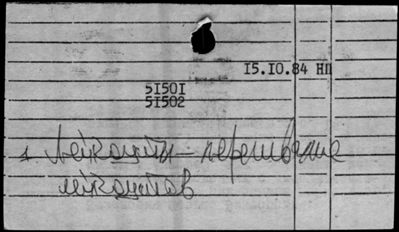 15.10.84 НП
51501
51502
Лейкоциты – переливание
лейкоцитов